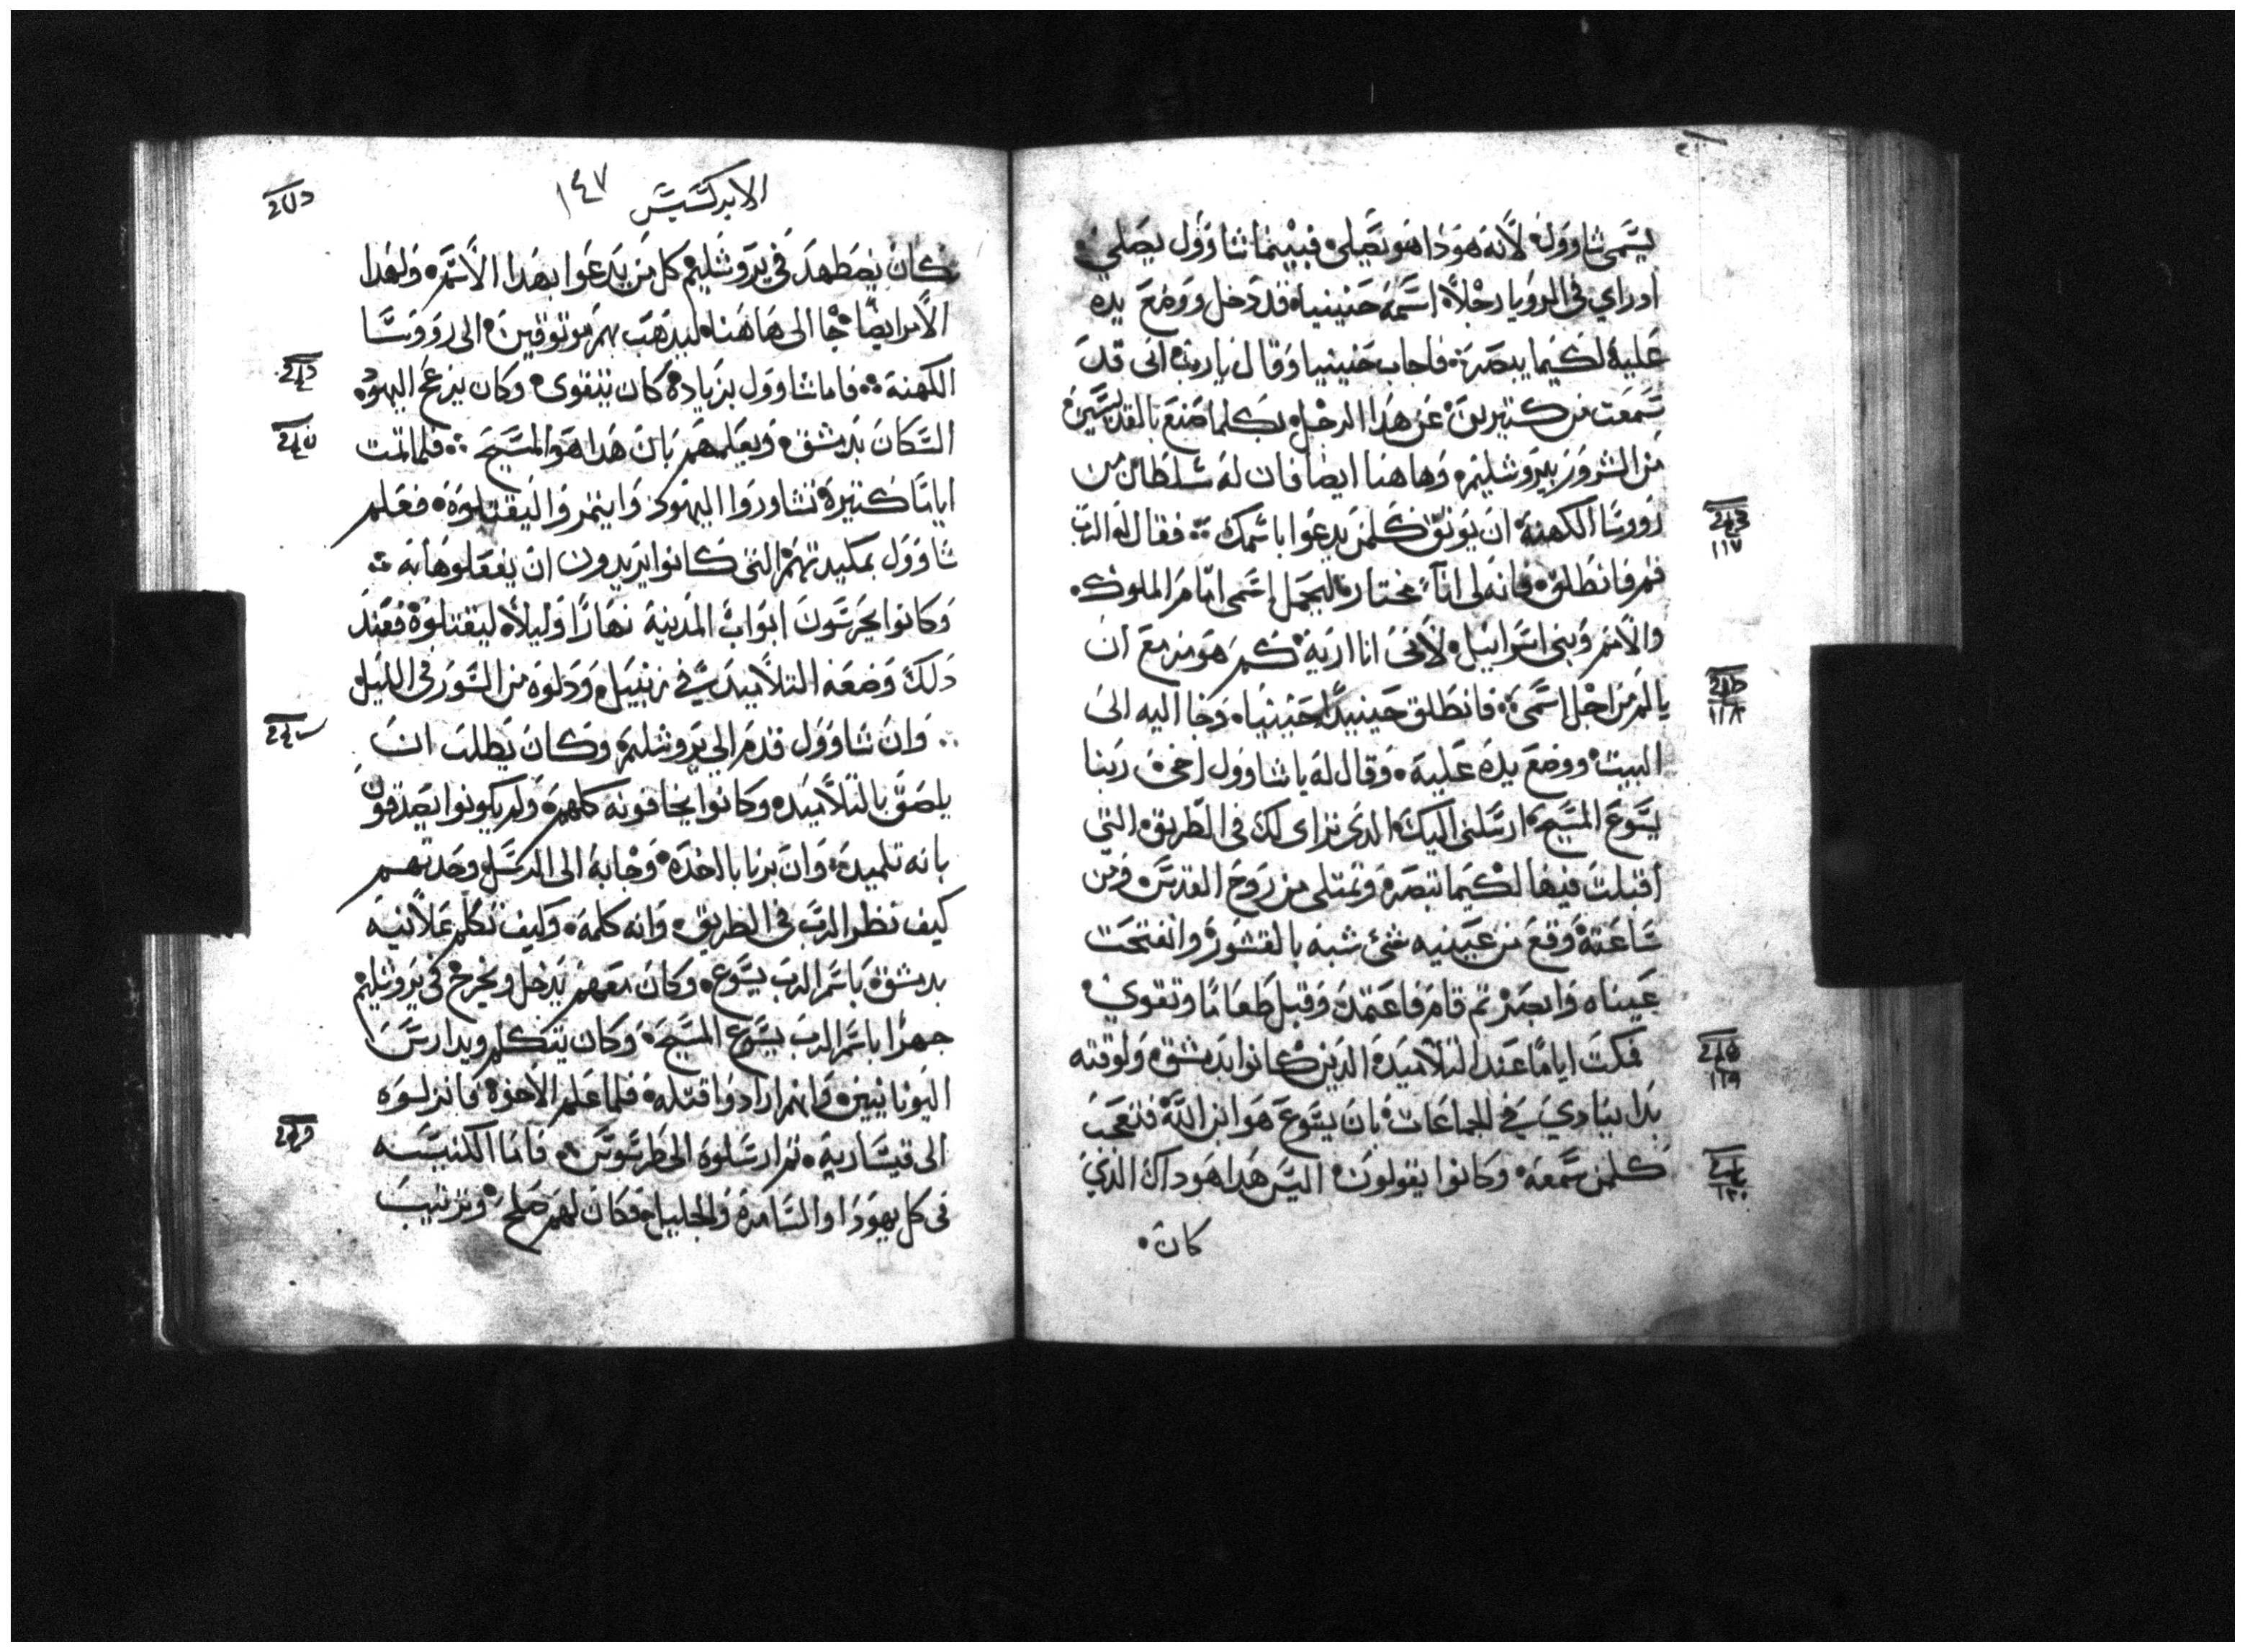 يسمى شاوول لانه هودا هو تصلي فبينما شاوول يصلي
اد راي في الرويا رجلاً اسمه حنينيا قد دخل ووضع يده
عليه لكيما يبصر فاجاب حنينيا وقال يارب اني قد
سمعت من كتيرين عن هدا الرجل بكلما صنع بالقديسين
من الشرور بيروشليم وهاهنا ايضا فان له سلطان من
رووسا الكهنة ان يوتق كلمن يدعوا باسمك فقال له الرب
قم فانطلق فانه لي اناً مختار ليحمل اسمي امام الملوك
والامم وبني اسراييل لانني انا اريه كم هو مزمع ان
يالم من اجل اسمي فانطلق حينيدٍ حنينيا وجا اليه الى
البيت ووضع يده عليه وقال له يا شاوول اخي ربنا
يسوع المسيح ارسلني اليك الدي تراى لك في الطريق التي
اقبلت فيها لكيما تبصر وتمتلي من روح القدس ومن
ساعته وقع من عينيه شي شبه بالقشور وانفتحت
عيناه وابصر تم قام فاعتمد وقبل طعامًا وتقوي
فمكت ايامًا عند التلاميد الدين كانوا بدمشق ولوقته
بدا ينادي في الجماعات بان يسوع هو ابن الله فتعجب
كلمن سمعه وكانوا يقولون اليس هدا هو داك الذي
كان
١١٧
١١٨
١١٩
١٢٠
الابركسيس ١٤٧
كان يضطهد في يروشليم كل من يدعوا بهدا الاسم ولهدا
الامر ايضًا جا الى هاهنا ليدهب بهم موتوقين الى رووسا
الكهنة فاما شاوول بزياده كان يتقوى وكان يزعج اليهود
السكان بدمشق ويعلمهم بان هدا هو المسيح فلما تمت
ايامًا كتيرة تشاوروا اليهود وايتمروا ليقتلوه فعلم
شاوول بمكيدتهم التي كانوا يريدون ان يفعلوها به
وكانوا يحرسون ابواب المدينة نهارًا وليلاً ليقتلوه فعند
دلك وضعه التلاميد في زنبيل ودلوه من السور في الليل
وان شاوول قدم الي يروشليم وكان يطلب ان
يلصق بالتلاميد وكانوا يخافونه كلهم ولم يكونوا يصدقون
بانه تلميد وان برنابا اخده وجابه الى الرسل وحدتهم
كيف نظر الرب في الطريق وانه كلمه وكيف تكلم علانيه
بدمشق باسم الرب يسوع وكان معهم يدخل ويخرج في يروشليم
جهرًا باسم الرب يسوع المسيح وكان يتكلم ويدارس
اليونانيين وانهم ارادوا قتله فلما علم الاخوة فانزلوه
الى قيسارية تم ارسلوه الى طرسوس فاما الكنيسه
في كل يهودا والسامرة والجليل فكان لهم صلح وترتيب